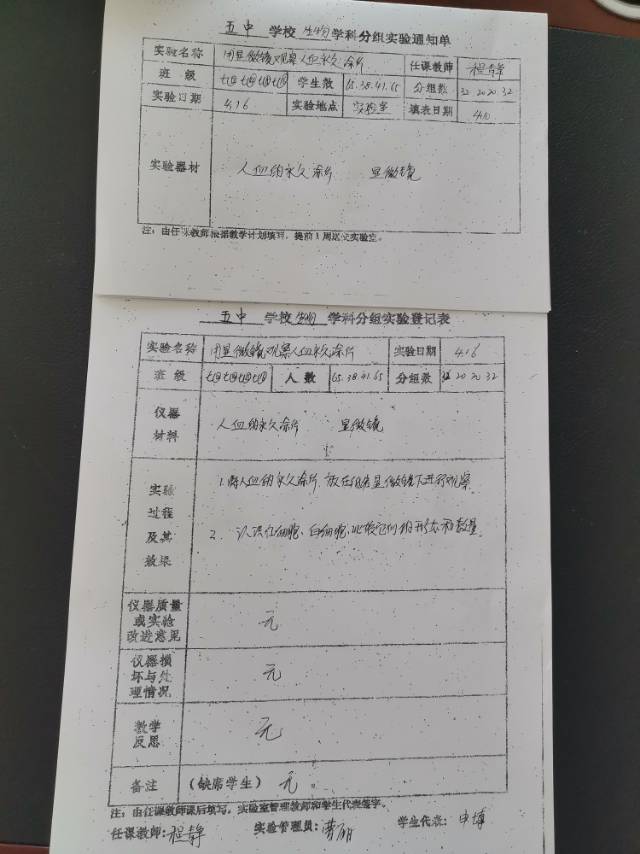 五中 学校 生物 学科分组实验通知单
实验名称 用显微镜观察人血永久涂片 任课教师 程静
班级 学生数 65.38.41.65 分组数 32 20 20 32
实验日期 4.16 实验地点 实验室 填表日期
实验器材 人血的永久涂片 显微镜
注：由任课教师根据教学计划填写，提前1周送交实验室。
五中 学校 生物 学科分组实验登记表
实验名称 用显微镜观察人血永久涂片 实验日期 4.16
班级 人数 65.38.41.65 分组数 32 20 20 32
仪器材料 人血的永久涂片 显微镜
实验过程及其效果 1.将人血的永久涂片，放在低倍显微镜下进行观察
2. 认识红细胞、白细胞，比较它们的形态和数量.
仪器质量或实验改进意见 无
仪器损坏与处理情况 无
教学反思 无
备注 (缺席学生) 无。
注：由任课教师课后填写，实验室管理教师和学生代表签字。
任课教师:程静 实验管理员: 学生代表: 申博